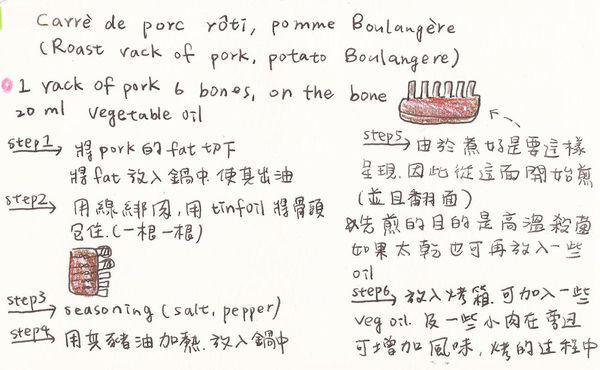 Carrè de porc rôti, pomme Boulangère
(Roast rack of pork, potato Boulangere)
1 rack of pork 6 bones, on the bone
20 ml vegetable oil
step1 將 pork 的 fat 切下
將 fat 放入鍋中使其出油
step2 用線綁肉,用 tinfoil 將骨頭
包住.(一根一根)
step3 seasoning (salt, pepper)
step4 用其豬油加熱.放入鍋中
step5 由於煮好是要這樣
呈現.因此從這面開始煎
(並且翻面)
先煎的目的是高溫殺菌
如果太乾也可再放入一些
oil
step6 放入烤箱.可加入一些
veg oil. 及一些小肉在旁邊
可增加風味,烤的過程中